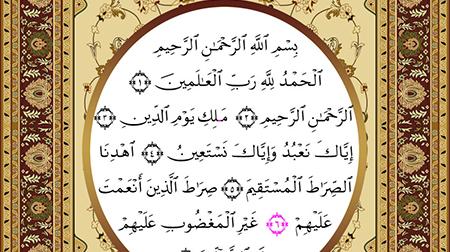 بِسْمِ اللَّهِ الرَّحْمَٰنِ الرَّحِيمِ
الْحَمْدُ لِلَّهِ رَبِّ الْعَالَمِينَ ﴿١﴾
الرَّحْمَٰنِ الرَّحِيمِ ﴿٢﴾ مَلِكِ يَوْمِ الدِّينِ ﴿٣﴾
إِيَّاكَ نَعْبُدُ وَإِيَّاكَ نَسْتَعِينُ ﴿٤﴾ اهْدِنَا
الصِّرَاطَ الْمُسْتَقِيمَ ﴿٥﴾ صِرَاطَ الَّذِينَ أَنْعَمْتَ
عَلَيْهِمْ ﴿٦﴾ غَيْرِ الْمَغْضُوبِ عَلَيْهِمْ